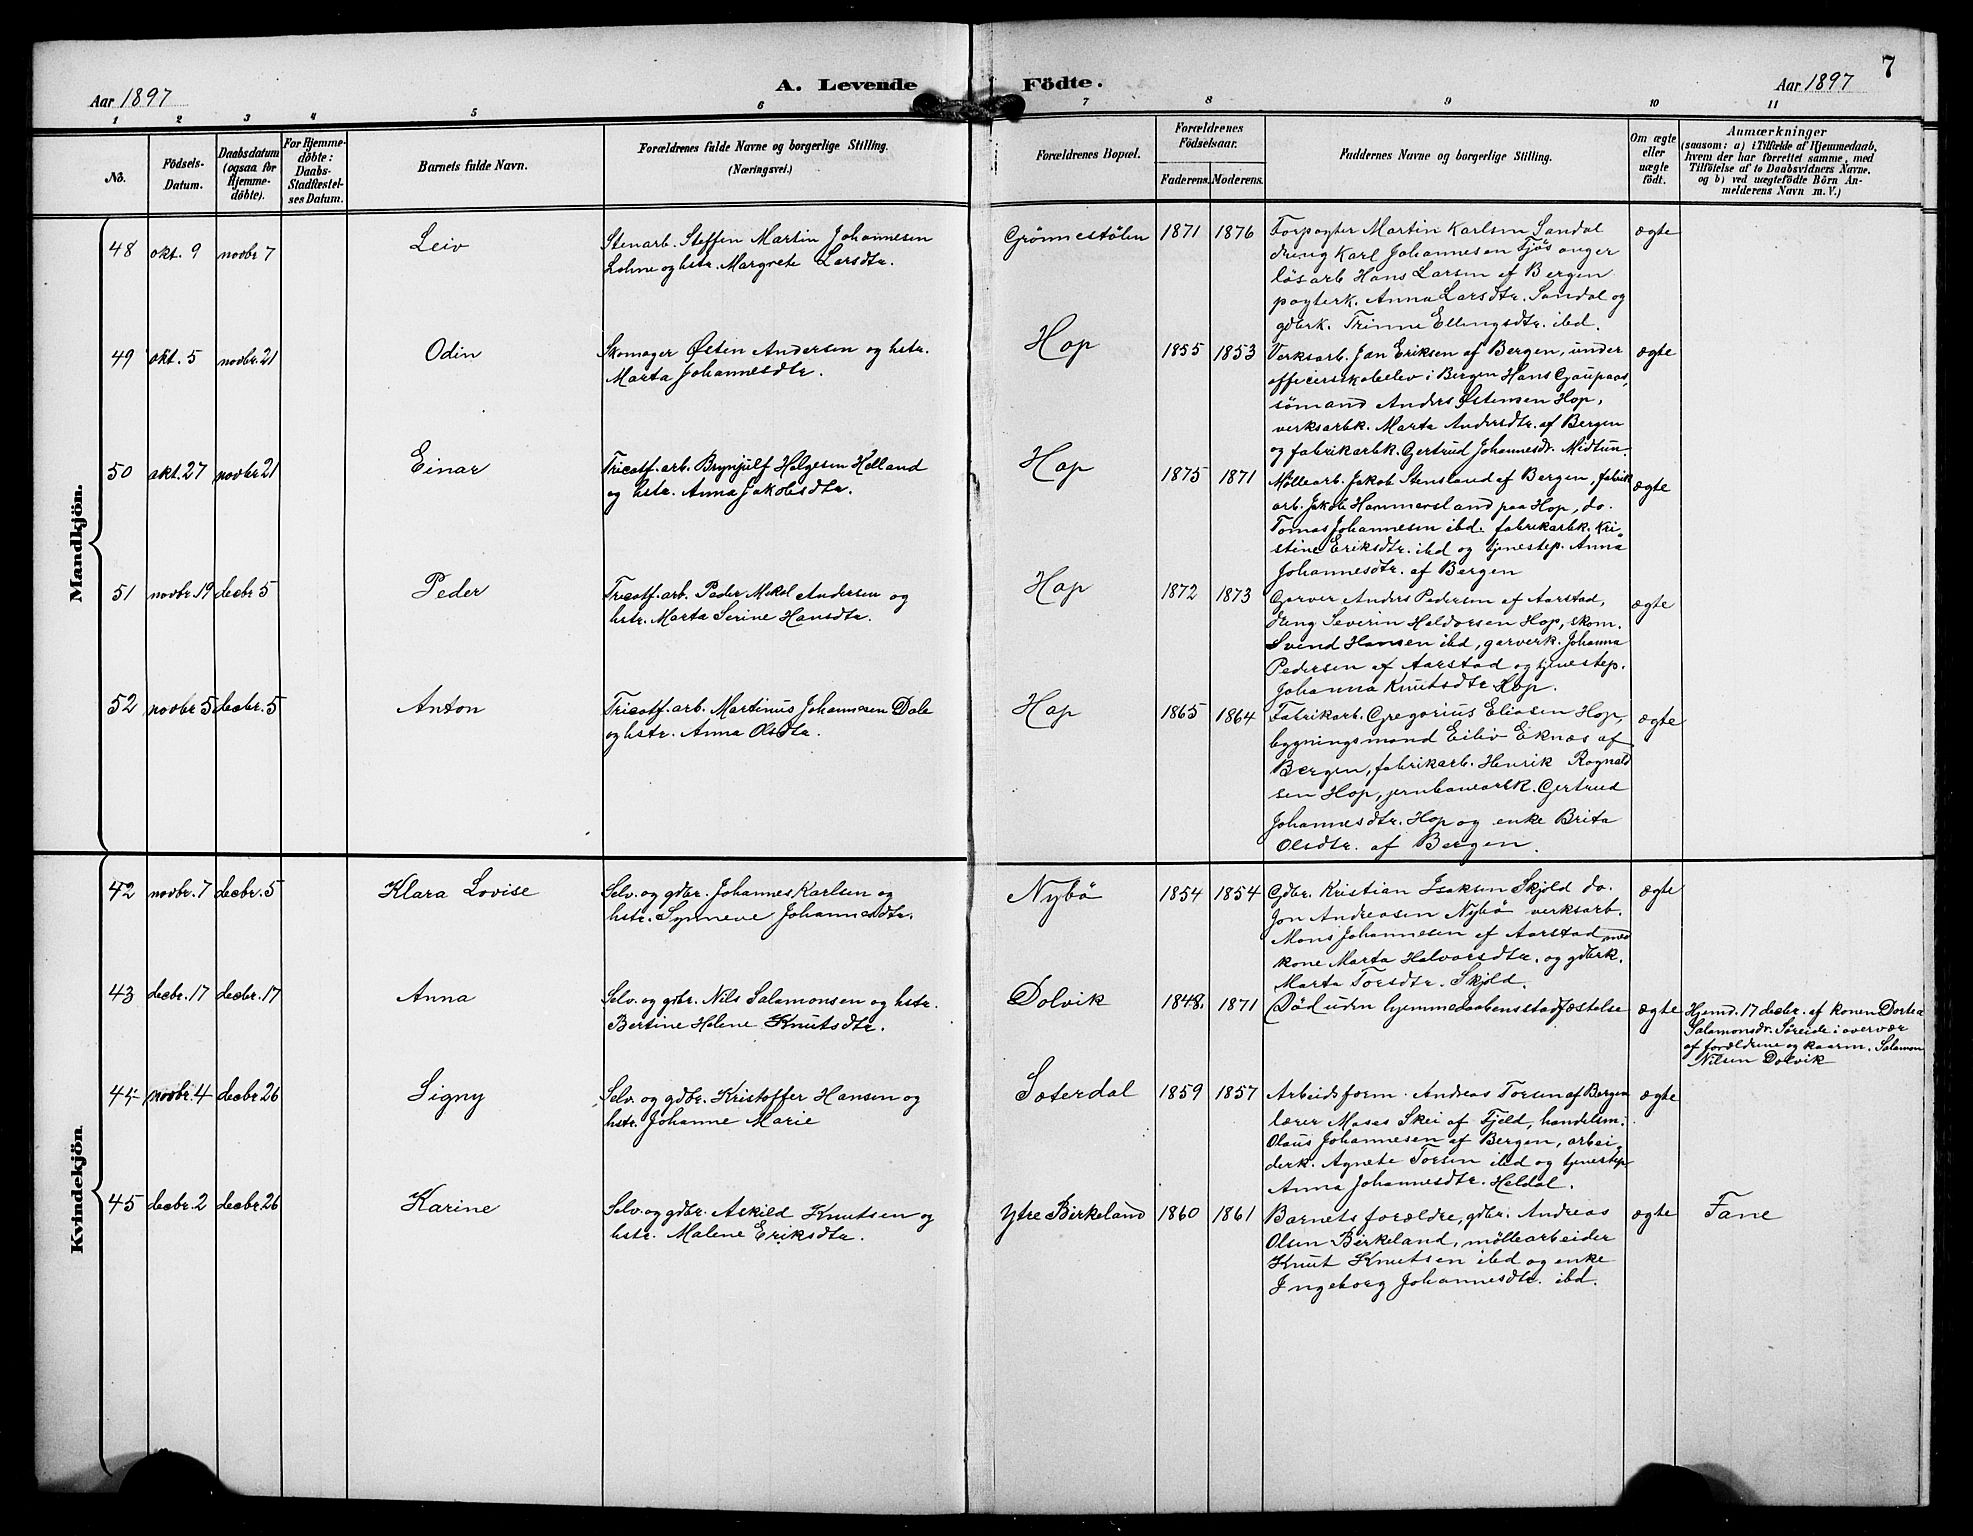 A. Levende Födte.
7
Aar 1897
Aar 1897
1 2 3 4 5 6 7 8 9 10 11
No.
Födsels-
Datum.
Daabsdatum
(ogsaa for
Hjemme-
døbte).
For Hjemme-
døbte:
Daabs-
Stadfæstel-
ses Datum.
Barnets fulde Navn.
Forældrenes fulde Navne og borgerlige Stilling.
(Næringsvei.)
Forældrenes Bopæl.
Forældrenes
Födselsaar.
Faderens. Moderens.
Faddernes Navne og borgerlige Stilling.
Om ægte
eller
uægte
födt.
Anmærkninger
(saasom: a) i Tilfælde af Hjemmedaab,
hvem der har forrettet samme, med
Tilföielse af to Daabsvidners Navne.
og b) ved uægtefödte Börn An-
melderens Navn m. V.)
Mandkjön.
48 okt. 9 novbr 7
Leiv
Stenarb. Steffen Martin Johannesen
Lohne og hstr. Margrete Larsdtr.
Grönnestölen 1871 1876
Forpagter Martin Karlsen Sandal
dreng Karl Johannesen Fjøsanger
løsarb Hans Larsen af Bergen
pagterk. Anna Larsdtr. Sandal og
gdbrk. Trinne Ellingsdtr. ibd.
ægte
49 okt. 5 novbr. 21
Odin
Skomager Østen Andersen og hstr.
Marta Johannesdtr.
Hop 1855 1853
Verksarb. Jan Eriksen af Bergen, under
officersskoleelev i Bergen Hans Gaupaas,
sömand Anders Østensen Hop,
verksarbk. Marta Andersdtr. af Bergen
og fabrikarbk. Gertrud Johannesdr. Midtun.
ægte
50 okt. 27 novbr 21
Einar
Tricotf. arb. Brynjulf Helgesen Helland
og hstr. Anna Jakobsdtr.
Hop 1875 1871
Möllearb. Jakob Stensland af Bergen, fabrik
arb. Jakob Hammersland paa Hop, do.
Tomas Johannesen ibd. fabrikarbk. Kri-
stine Eriksdtr. ibd og tjenestep. Anna
Johannesdtr. af Bergen
ægte
51 novbr. 19 decbr 5
Peder
Tricotf. arb. Peder Mikal Andersen og
hstr. Marta Serine Hansdtr.
Hop 1872 1873
Garver Anders Pedersen af Aarstad,
dreng Severin Haldorsen Hop, skom.
Svend Hansen ibd, garverk. Johanna
Pedersen af Aarstad og tjenestep.
Johanna Knutsdtr Hop.
ægte
52 novbr 5 decbr. 5
Anton
Tricotf. arb. Martinus Johannesen Dale
og hstr. Anna Olsdtr.
Hop 1865 1864
Fabrikarb. Gregorius Eliasen Hop,
bygningsmand Eiliv Eknæs af
Bergen, fabrikarb. Henrik Rognald
sen Hop, jernbanearbk. Gertrud
Johannesdtr. Hop og enke Brita
Olsdtr. af Bergen.
ægte
Kvindekjön.
42 novbr. 7 decbr. 5
Klara Lovise
Selv. og gdbr. Johannes Karlsen og
hstr. Synneve Johannesdtr.
Nybö 1854 1854
Gdbr. Kristian Isaksen Skjold do.
Jon Andreasen Nybö verksarb.
Mons Johannesen af Aarstad med
kone Marta Halvorsdtr. og gdbrk.
Marta Torsdtr. Skjold.
ægte
43 decbr. 17 decbr. 17
Anna
Selv. og gdbr. Nils Salamonsen og hstr.
Bertine Helene Knutsdtr.
Dolvik 1848. 1871
Död uden hjemmedaabensstadfæstelse
ægte
Hjemd. 17 decbr. af konen Dortea
Salamonsdr. Søreide i overvær
af forældrene og kaarm. Salamon
Nilsen Dolvik
44 novbr. 4 decbr 26
Signy
Selv. og gdbr. Kristoffer Hansen og
hstr. Johanne Marie
Sæterdal 1859 1857
Arbeidsform. Andreas Torsen af Bergen
lærer Moses Skei af Fjeld, handelsm.
Olaus Johannesen af Bergen, arbei-
derk. Agnete Torsen ibd og tjenestep
Anna Johannesdtr. Heldal.
ægte
45 decbr. 2 decbr 26
Karine
Selv. og gdbr. Askild Knutsen og
hstr. Malene Eriksdtr.
Ytre Birkeland 1860 1861
Barnets forældre, gdbr. Andreas
Olsen Birkeland, möllearbeider
Knut Knutsen ibd og enke
Ingeborg Johannesdtr. ibd.
ægte
Fane